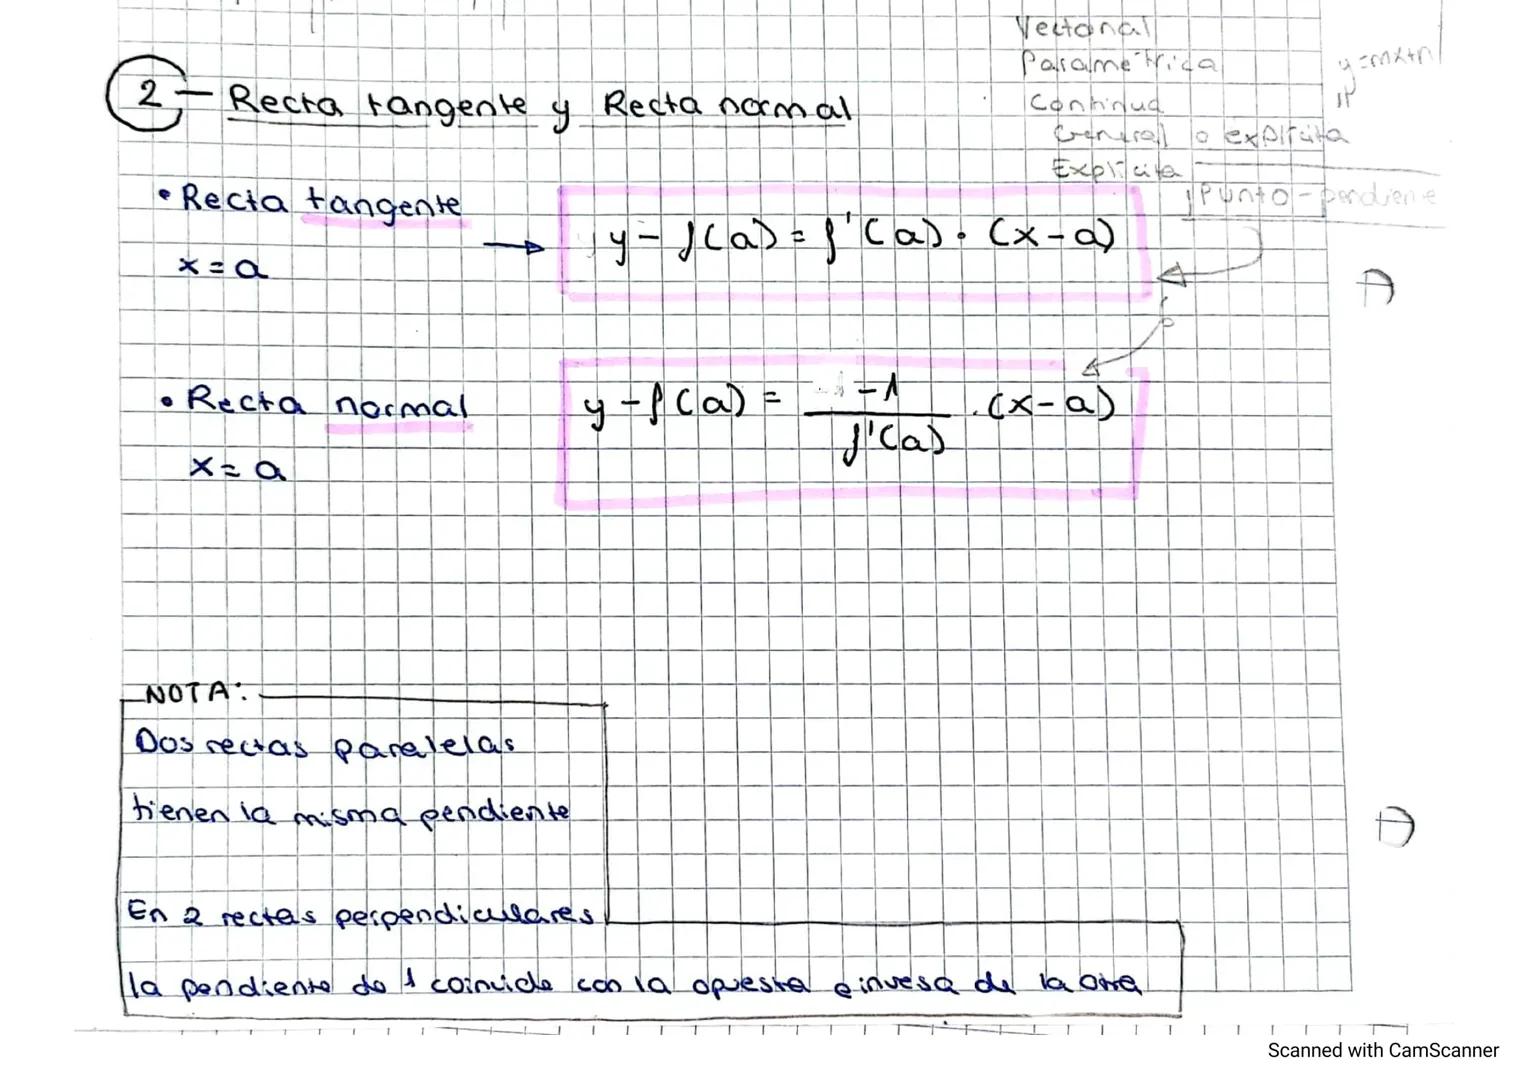 Vectorial
Paramétrica
y=mx+n
Continua
General o explícita
Explícita
Punto-pendiente
2 - Recta tangente y Recta normal
• Recta tangente
x = a
y - f(a) = f'(a) · (x-a)
• Recta normal
x = a
y - f(a) = -1 / f'(a) · (x-a)
NOTA:
Dos rectas paralelas
tienen la misma pendiente
En 2 rectas perpendiculares
la pendiente de 1 coincide con la opuesta e invesa de la otra
Scanned with CamScanner